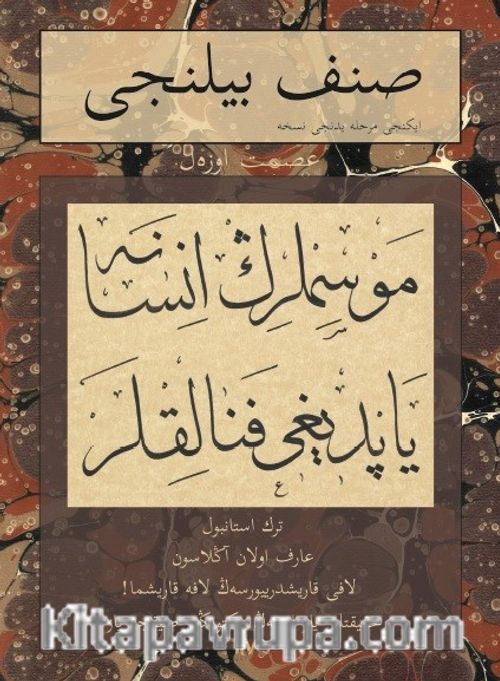 صنف بيلنجى
ايكنجى مرحله يدنجى نسخه
عصمت اوزەل
مَوْسِملرڭ اِنسانه
ياپديغى فنالقلر
ترك استانبول
عارف اولان آڭلاسون
لافى قاريشديرييورسەڭ لافه قاريشما!
kitapavrupa.com